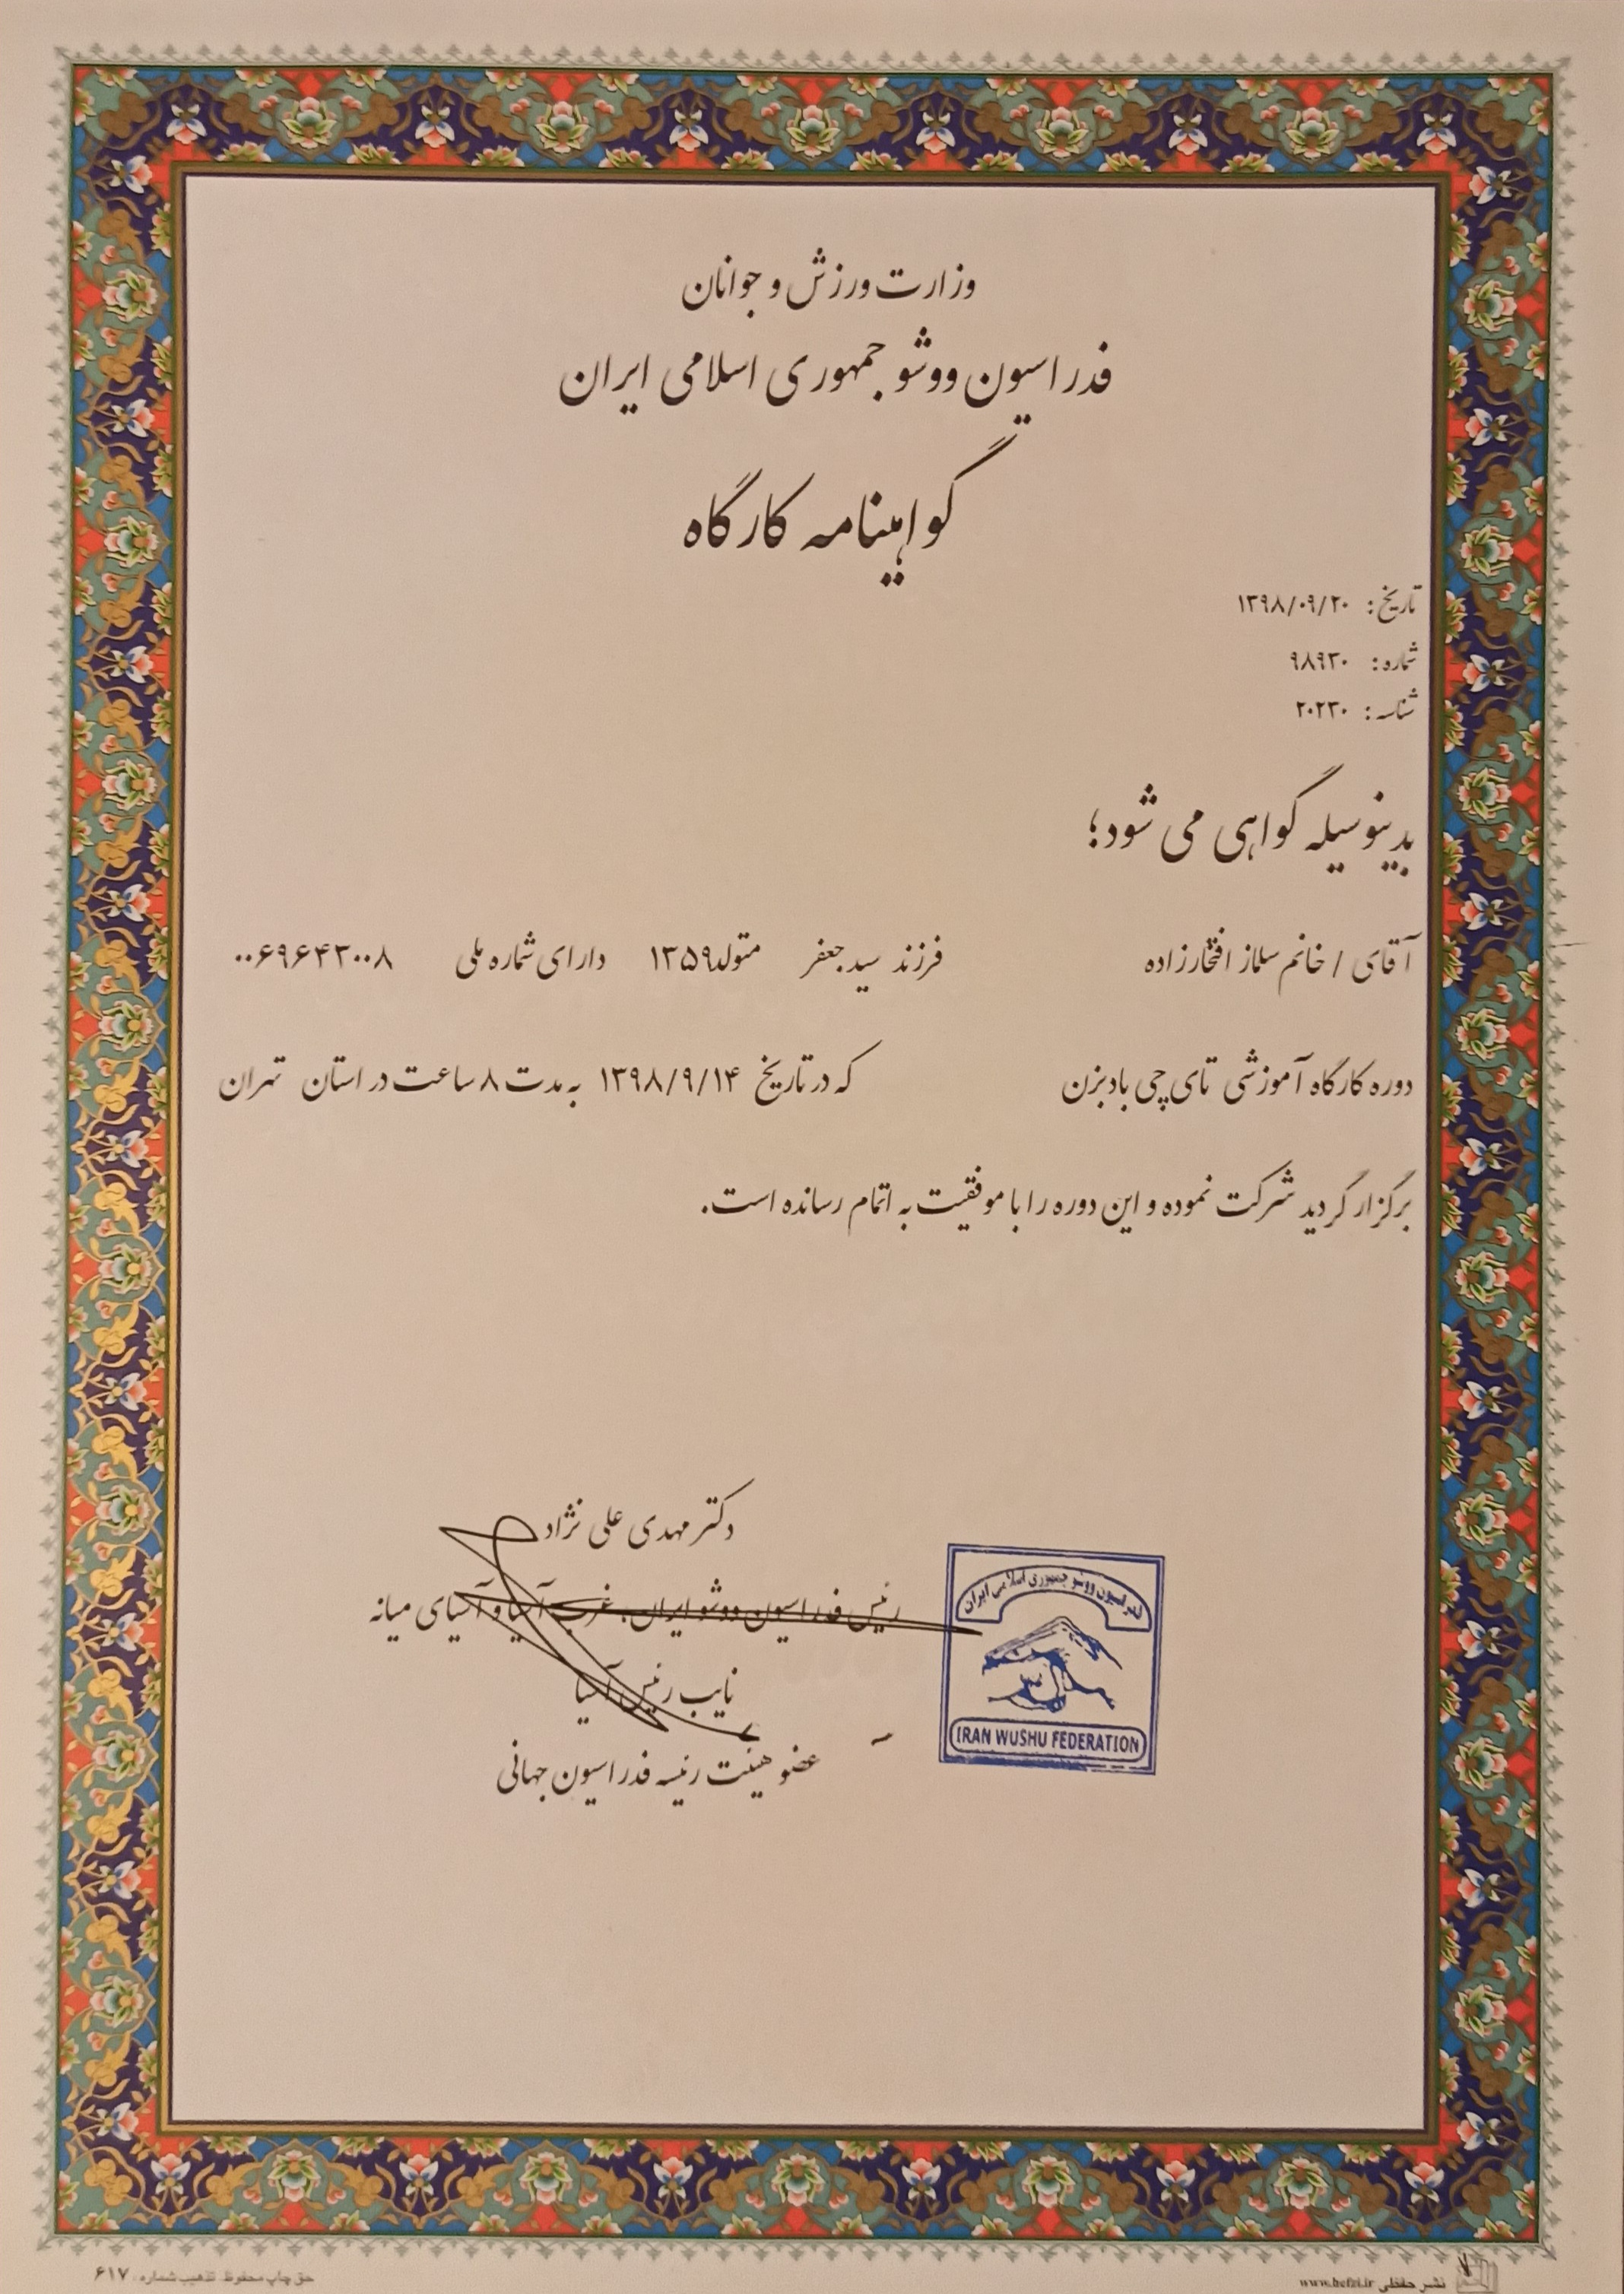 وزارت ورزش و جوانان
فدراسیون ووشو جمهوری اسلامی ایران
گواهینامه کارگاه
تاریخ: ۱۳۹۸/۰۹/۲۰
شماره: ۹۸۹۳۰
شناسه: ۲۰۲۳۰
بدینوسیله گواهی می شود؛
آقای / خانم سلماز افتخارزاده فرزند سید جعفر متولد ۱۳۵۹ دارای شماره ملی ۰۰۶۹۶۴۳۰۰۸
دوره کارگاه آموزشی تای چی بادبزن که در تاریخ ۱۳۹۸/۹/۱۴ به مدت ۸ ساعت در استان تهران
برگزار گردید شرکت نموده و این دوره را با موفقیت به اتمام رسانده است.
دکتر مهدی علی نژاد
رئیس فدراسیون ووشو ایران، غرب آسیا و آسیای میانه
نایب رئیس آسیا
عضو هیئت رئیسه فدراسیون جهانی
فدراسیون ووشو جمهوری اسلامی ایران
IRAN WUSHU FEDERATION
نشر حافظی www.hefzi.ir
حق چاپ محفوظ تذهیب شماره ۶۱۷